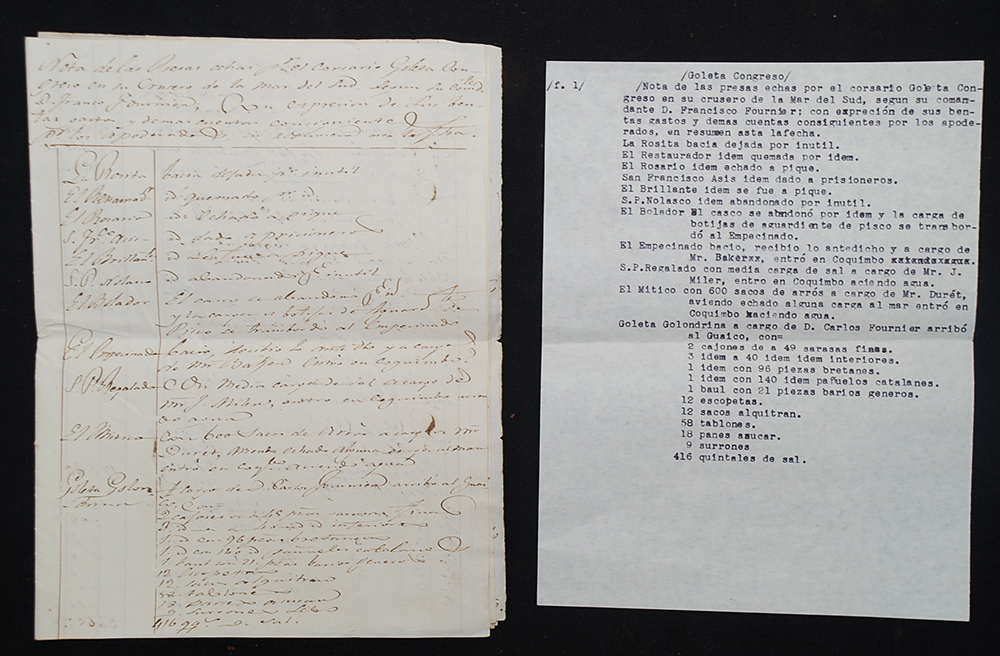 Nota de las Presas echas pr el corsario Goleta Con-
greso en su Crusero de la mar del Sud, segun su Comte
D. Franco Fournier; Con expresion de sus ben-
tas gastos y demas cuentas consiguientes
por los apoderados en resumen asta la fha.
La Rosita bacia dejada pr inutil
El Restaurador id quemado pr id.
El Rosario id echado a pique
S. Franco Asis id dado a pricioneros
El Brillante id se fue a pique
S. P. Nolasco id abandonado pr inutil
El Bolador El casco se abandonó pr id
y la carga de botijas de aguardte de
Pisco se transbordó al Empecinado
El Empecinado bacio, recibio lo antedicho y a cargo
de Mr entró en Coquimbo
S. P. Regalado Con media carga de sal a cargo de
Mr J. Miler, entro en Coquimbo acien-
do agua
El Mitico Con 600 sacos de Arrós a cargo de Mr
Durét, echado alguna carga al mar
entró en Coqbo aciendo agua
Goleta Golon-
drina A cargo de D. Carlos Fournier arribó al Guai-
co, Con
2 cajones de a 49 sarasas finas
3 id a 40 id id interiores
1 id con 96 pezas bretanas
1 id con 140 id pañuelos catalanes
1 baul con 21 pzas barios generos
12 Escopetas
12 sacos alquitran
58 tablones
18 panes asucar
9 surrones
416 qqs de Sal.
/Goleta Congreso/
/f. 1/ /Nota de las presas echas por el corsario Goleta Con-
greso en su crusero de la Mar del Sud, segun su coman-
dante D. Francisco Fournier; con expreción de sus ben-
tas gastos y demas cuentas consiguientes por los apode-
rados, en resumen asta lafecha.
La Rosita bacia dejada por inutil.
El Restaurador idem quemada por idem.
El Rosario idem echado a pique.
San Francisco Asis idem dado a prisioneros.
El Brillante idem se fue a pique.
S.P.Nolasco idem abandonado por inutil.
El Bolador El casco se abandonó por idem y la carga de
botijas de aguardiente de pisco se transbor-
dó al Empecinado.
El Empecinado bacio, recibio lo antedicho y a cargo de
Mr. Bakerxx, entró en Coquimbo
S.P.Regalado con media carga de sal a cargo de Mr. J.
Miler, entro en Coquimbo aciendo agua.
El Mitico con 600 sacos de arrós a cargo de Mr. Durét,
aviendo echado alguna carga al mar entró en
Coquimbo haciendo agua.
Goleta Golondrina a cargo de D. Carlos Fournier arribó
al Guaico, con=
2 cajones de a 49 sarasas finas.
3 idem a 40 idem idem interiores.
1 idem con 96 piezas bretanes.
1 idem con 140 idem pañuelos catalanes.
1 baul con 21 piezas barios generos.
12 escopetas.
12 sacos alquitran.
58 tablones.
18 panes asucar.
9 surrones
416 quintales de sal.